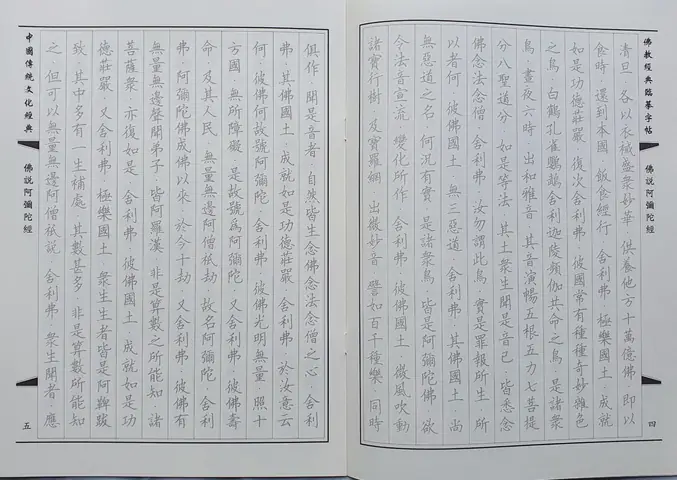 佛教經典臨摹字帖
佛説阿彌陀經
四
清旦 各以衣祴盛衆妙華 供養他方十萬億佛 即以
食時 還到本國 飯食經行 舍利弗 極樂國土 成就
如是功德莊嚴 復次舍利弗 彼國常有種種奇妙雜色
之鳥 白鶴孔雀鸚鵡舍利迦陵頻伽共命之鳥 是諸衆
鳥 晝夜六時 出和雅音 其音演暢五根五力七菩提
分八聖道分 如是等法 其土衆生聞是音已 皆悉念
佛念法念僧 舍利弗 汝勿謂此鳥 實是罪報所生 所
以者何 彼佛國土 無三惡道 舍利弗 其佛國土 尚
無惡道之名 何況有實 是諸衆鳥 皆是阿彌陀佛 欲
令法音宣流 變化所作 舍利弗 彼佛國土 微風吹動
諸寶行樹 及寶羅網 出微妙音 譬如百千種樂 同時
俱作 聞是音者 自然皆生念佛念法念僧之心 舍利
弗 其佛國土 成就如是功德莊嚴 舍利弗 於汝意云
何 彼佛何故號阿彌陀 舍利弗 彼佛光明無量 照十
方國 無所障礙 是故號爲阿彌陀 又舍利弗 彼佛壽
命 及其人民 無量無邊阿僧祇劫 故名阿彌陀 舍利
弗 阿彌陀佛成佛以來 於今十劫 又舍利弗 彼佛有
無量無邊聲聞弟子 皆阿羅漢 非是算數之所能知 諸
菩薩衆 亦復如是 舍利弗 彼佛國土 成就如是功
德莊嚴 又舍利弗 極樂國土 衆生生者皆是阿鞞跋
致 其中多有一生補處 其數甚多 非是算數所能知
之 但可以無量無邊阿僧祇説 舍利弗 衆生聞者 應
中國傳統文化經典
佛説阿彌陀經
五